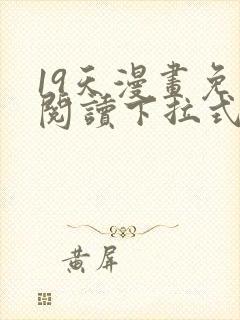 19天漫畫免
閱讀下拉式
黃屏